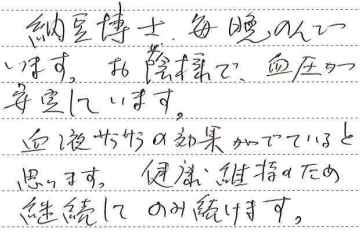 納豆博士、毎晩のんで
います。お陰様で、血圧が
安定しています。
血液サラサラの効果がでていると
思います。健康維持のため
継続してのみ続けます。